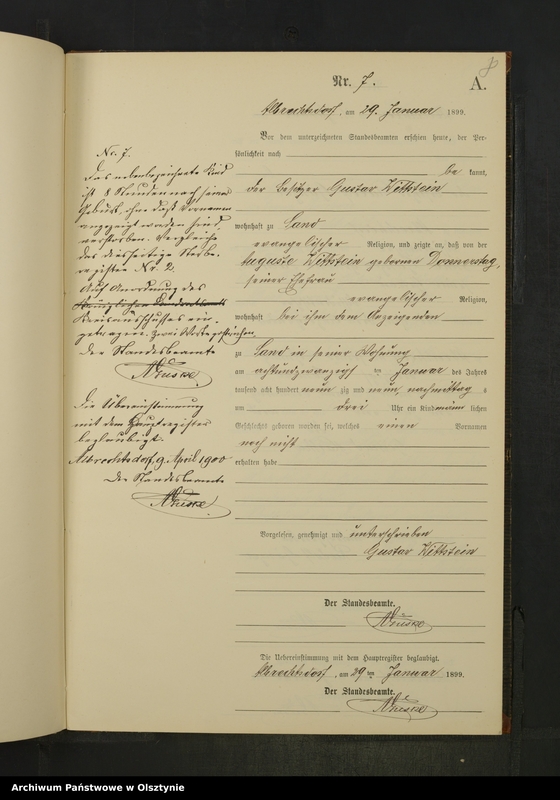 Nr. 7.
A.
Albrechtsdorf, am 29. Januar 1899.
Vor dem unterzeichneten Standesbeamten erschien heute, der Per-
sönlichkeit nach
be kannt,
der Besitzer Gustav Wittstein
wohnhaft zu Sand
evangelischer Religion, und zeigte an, daß von der
Auguste Wittstein geborenen Donnerstag,
seiner Ehefrau
evangelischer Religion,
wohnhaft bei ihm dem Anzeigenden
zu Sand in seiner Wohnung
am achtundzwanzigsten Januar des Jahres
tausend acht hundert neun zig und neun, nachmittag s
um drei Uhr ein Kind männ lichen
Geschlechts geboren worden sei, welches einen Vornamen
noch nicht
erhalten habe
Vorgelesen, genehmigt und unterschrieben
Gustav Wittstein
Der Standesbeamte.
Die Uebereinstimmung mit dem Hauptregister beglaubigt.
Albrechtsdorf, am 29 ten Januar 1899.
Der Standesbeamte.
No. 7.
Das nebenbezeichnete Kind
ist 8 Stunden nach seiner
Geburt, ohne daß Vornamen
angezeigt worden sind,
verstorben. Vergleiche
das diesseitige Sterbe-
register Nr. 2.
Auf Anordnung des
Königlichen Landrathsamts
Kreisausschusses ein-
getragen. Zwei Worte gestrichen.
Der Standesbeamte
Die Übereinstimmung
mit dem Hauptregister
beglaubigt.
Albrechtsdorf, 9. April 1900
Der Standesbeamte
Archiwum Państwowe w Olsztynie